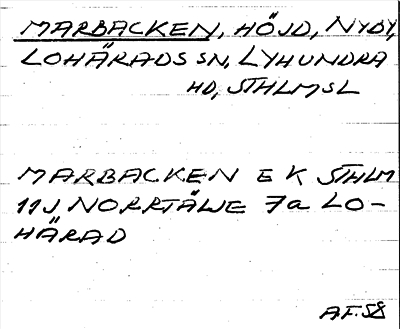 MARBACKEN, HÖJD, NYBY,
LOHÄRADS SN, LYHUNDRA
HD, STHLMSL
MARBACKEN E K STHLM
11J NORRTÄLJE 7a LO-
HÄRAD
AF. 58